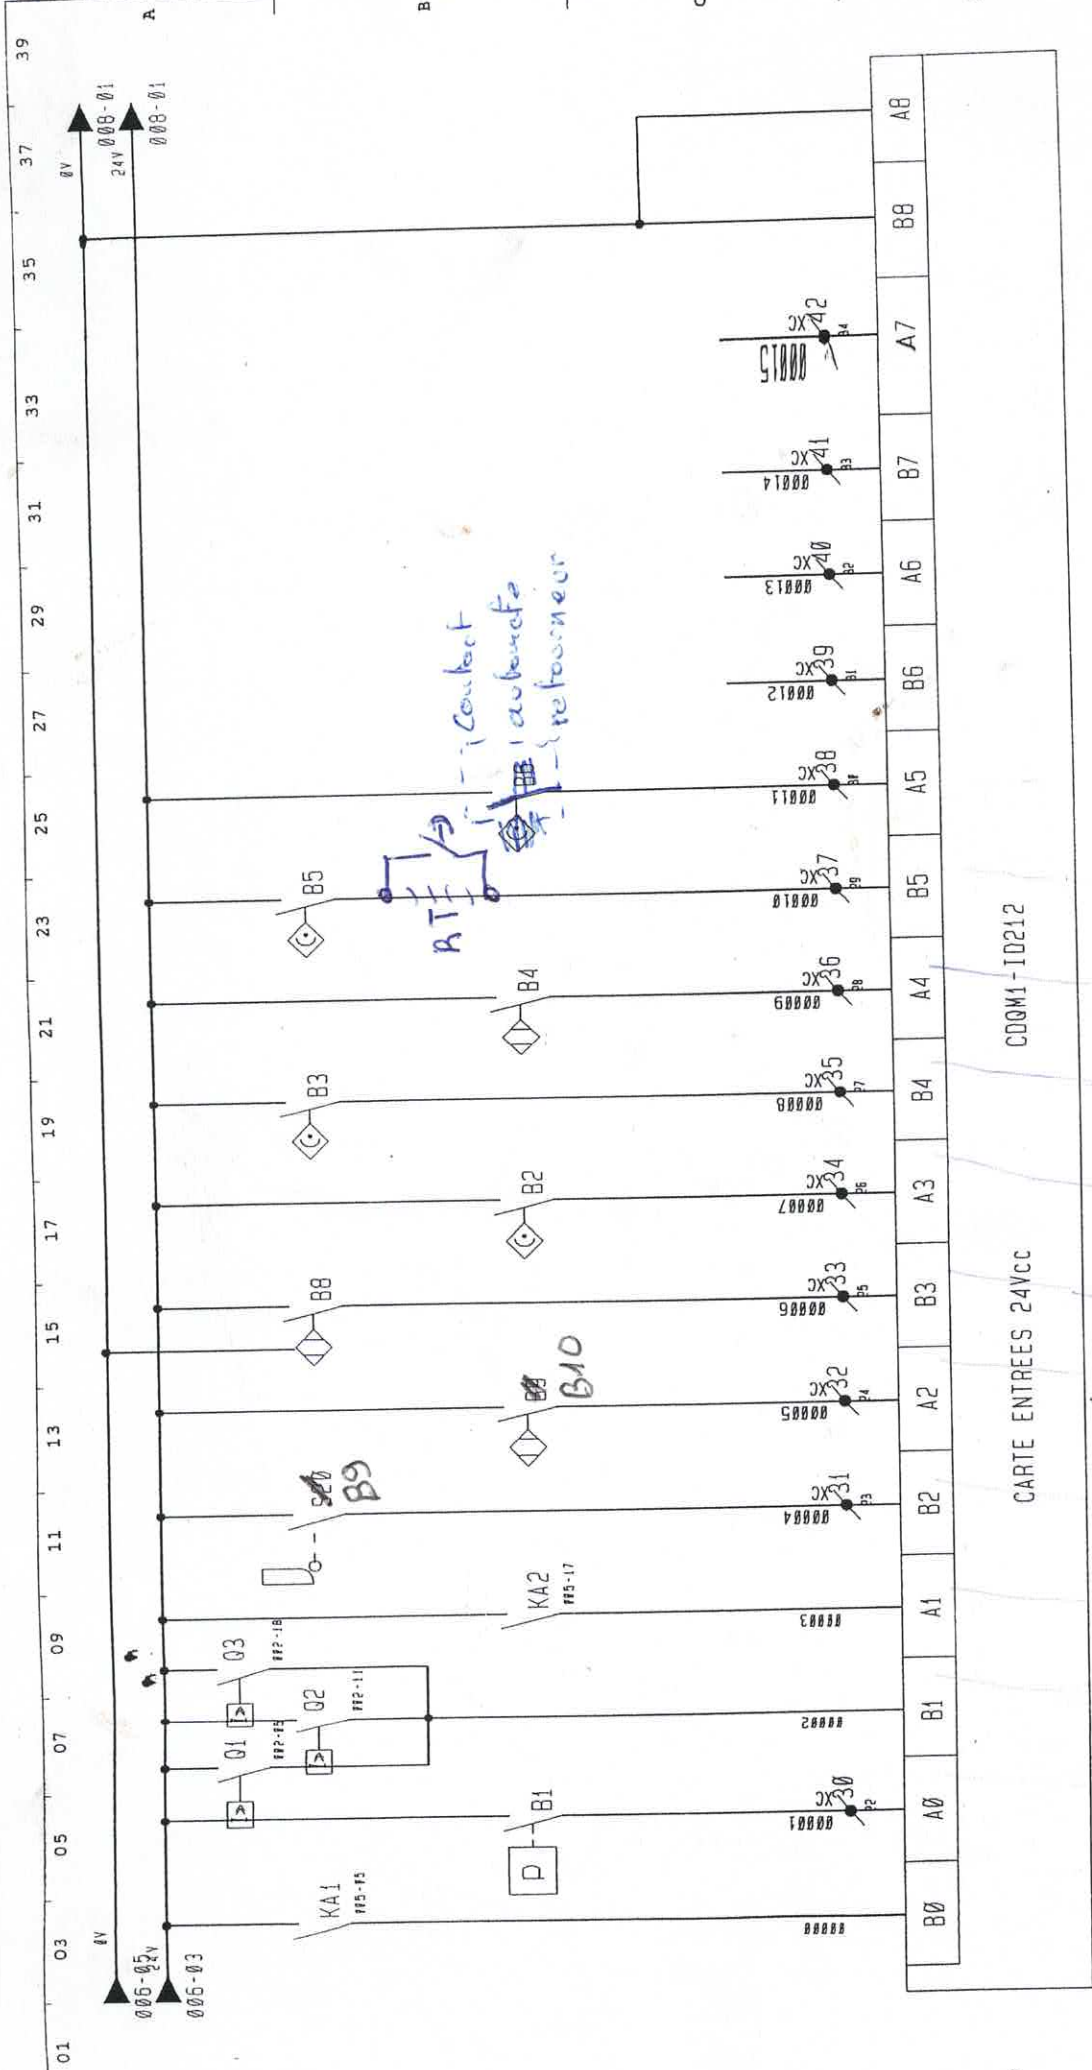 01 03 05 07 09 11 13 15 17 19 21 23 25 27 29 31 33 35 37 39
A
B
C
0V
006-05
24V
006-03
0V
008-01
24V
008-01
KA1
005-05
B1
Q1
002-05
Q2
002-11
Q3
002-18
KA2
005-17
B9
B10
B8
B2
B3
B4
B5
RT
Contact
automate
retourneur
00000
00001
XC
30
22
00002
00003
00004
XC
31
23
00005
XC
32
24
00006
XC
33
25
00007
XC
34
26
00008
XC
35
27
00009
XC
36
28
00010
XC
37
29
00011
XC
38
00012
XC
39
31
00013
XC
40
32
00014
XC
41
33
00015
XC
42
34
B0 A0 B1 A1 B2 A2 B3 A3 B4 A4 B5 A5 B6 A6 B7 A7 B8 A8
CARTE ENTREES 24Vcc CDQM1-ID212